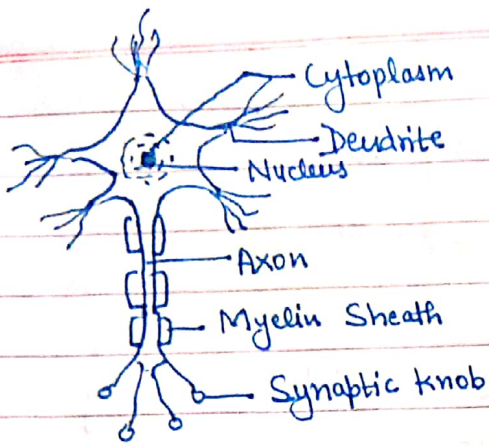 Cytoplasm
Dendrite
Nucleus
Axon
Myelin Sheath
Synaptic knob